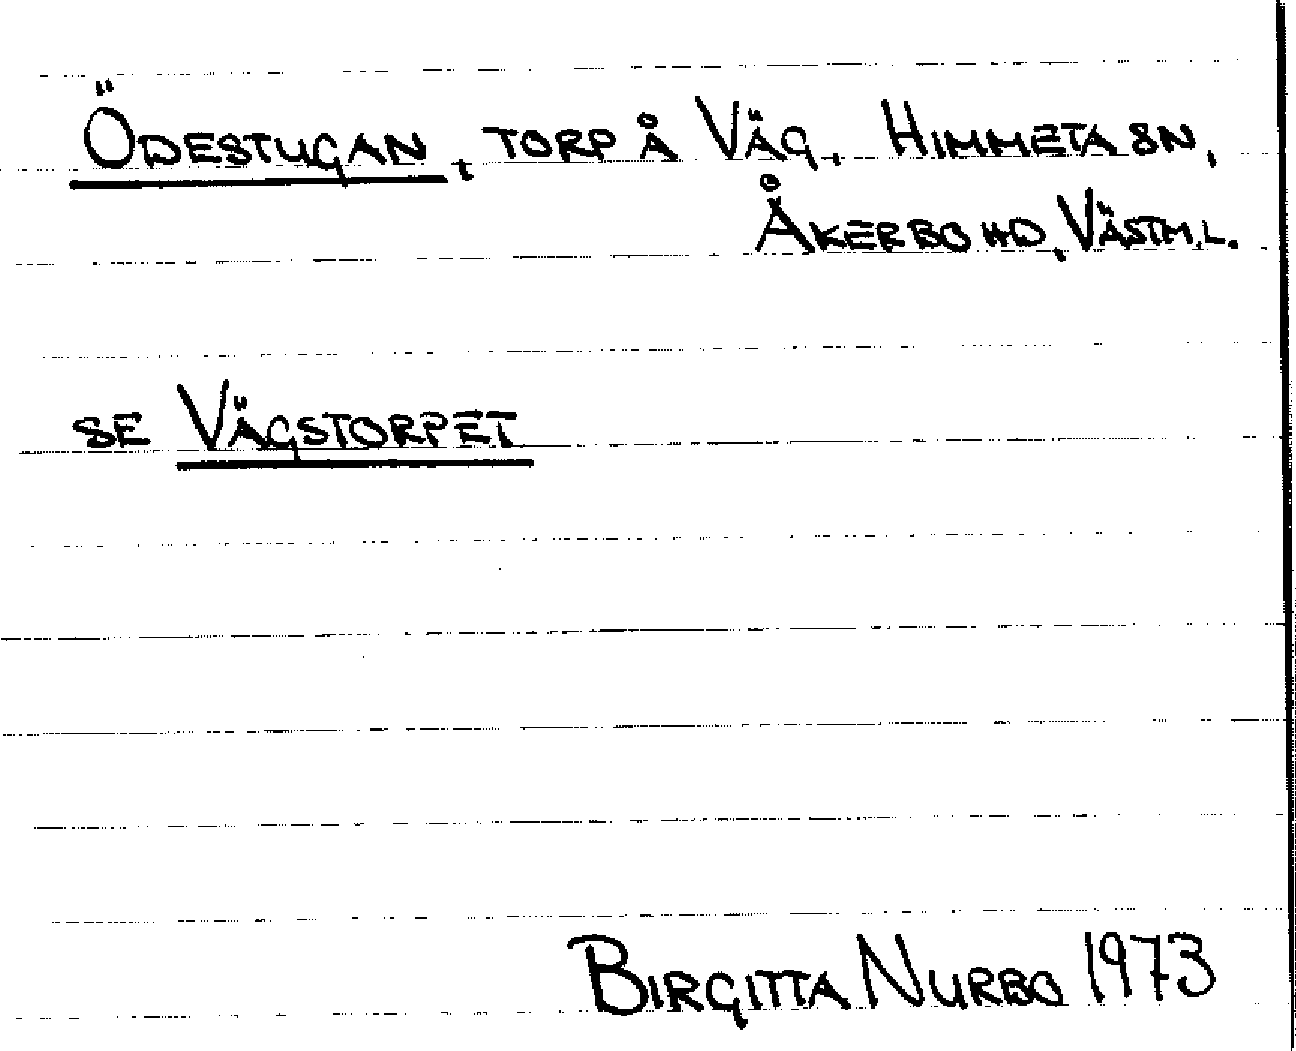 ÖDESTUGAN, TORP Å VÄG, HIMMETA SN,
ÅKERBO HD, VÄSTM.L.
SE VÄGSTORPET
BIRGITTA NURBO 1973